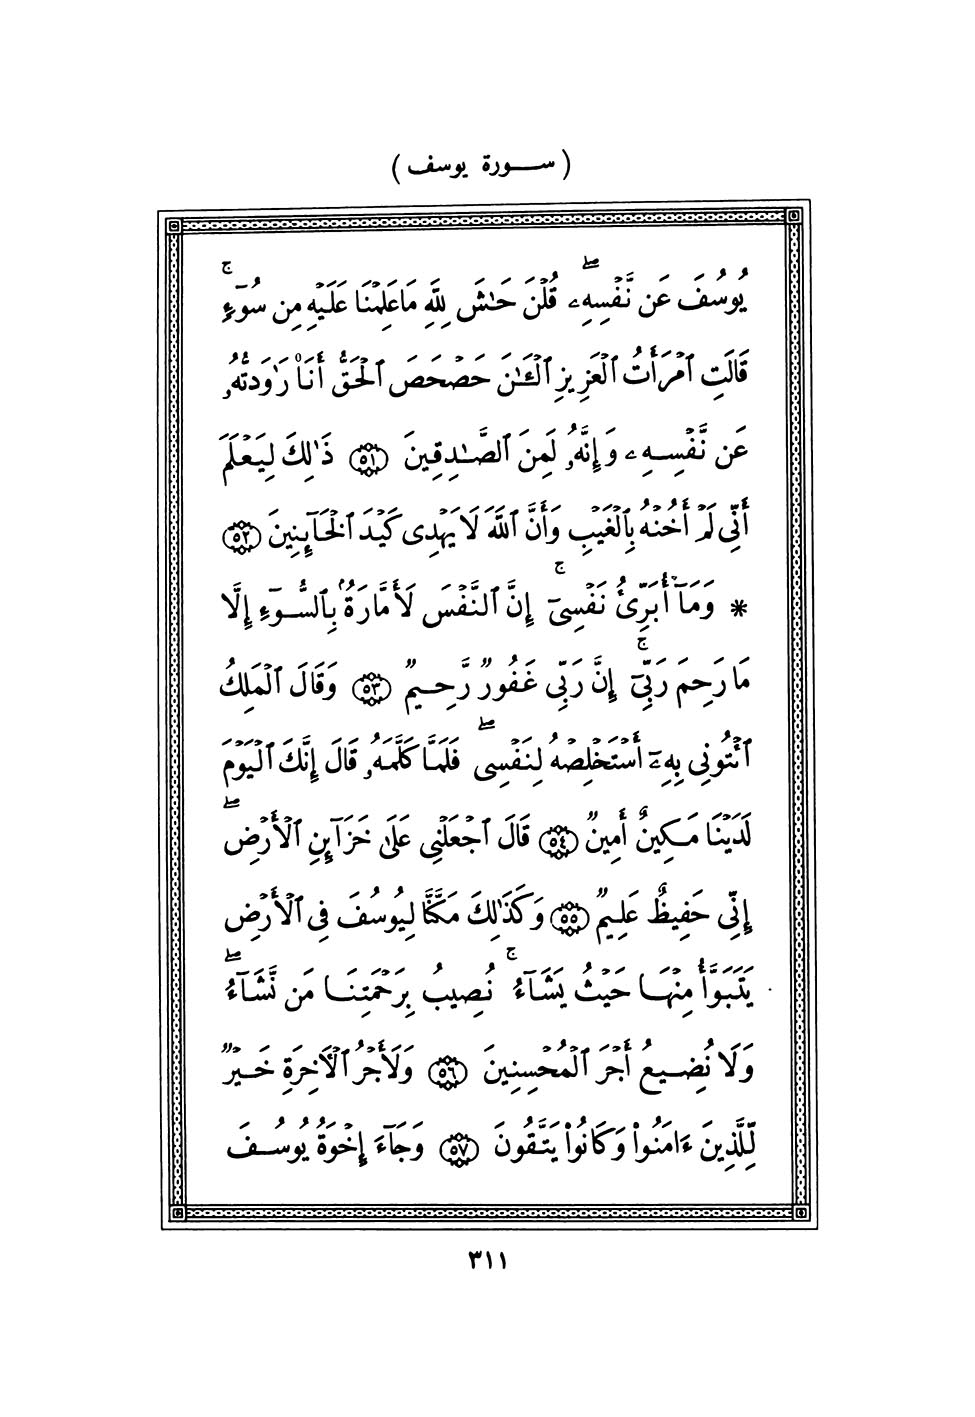 ( ســورة يوسف )
يُوسُفَ عَن نَّفۡسِهِۦۖ قُلۡنَ حَٰشَ لِلَّهِ مَا عَلِمۡنَا عَلَيۡهِ مِن سُوٓءٖۚ
قَالَتِ ٱمۡرَأَتُ ٱلۡعَزِيزِ ٱلۡـَٰٔنَ حَصۡحَصَ ٱلۡحَقُّ أَنَا۠ رَٰوَدتُّهُۥ
عَن نَّفۡسِهِۦ وَإِنَّهُۥ لَمِنَ ٱلصَّٰدِقِينَ ۝٥١ ذَٰلِكَ لِيَعۡلَمَ
أَنِّي لَمۡ أَخُنۡهُ بِٱلۡغَيۡبِ وَأَنَّ ٱللَّهَ لَا يَهۡدِي كَيۡدَ ٱلۡخَآئِنِينَ ۝٥٢
* وَمَآ أُبَرِّئُ نَفۡسِيٓۚ إِنَّ ٱلنَّفۡسَ لَأَمَّارَةُۢ بِٱلسُّوٓءِ إِلَّا
مَا رَحِمَ رَبِّيٓۚ إِنَّ رَبِّي غَفُورٞ رَّحِيمٞ ۝٥٣ وَقَالَ ٱلۡمَلِكُ
ٱئۡتُونِي بِهِۦٓ أَسۡتَخۡلِصۡهُ لِنَفۡسِيۖ فَلَمَّا كَلَّمَهُۥ قَالَ إِنَّكَ ٱلۡيَوۡمَ
لَدَيۡنَا مَكِينٌ أَمِينٞ ۝٥٤ قَالَ ٱجۡعَلۡنِي عَلَىٰ خَزَآئِنِ ٱلۡأَرۡضِۖ
إِنِّي حَفِيظٌ عَلِيمٞ ۝٥٥ وَكَذَٰلِكَ مَكَّنَّا لِيُوسُفَ فِي ٱلۡأَرۡضِ
يَتَبَوَّأُ مِنۡهَا حَيۡثُ يَشَآءُۚ نُصِيبُ بِرَحۡمَتِنَا مَن نَّشَآءُۖ
وَلَا نُضِيعُ أَجۡرَ ٱلۡمُحۡسِنِينَ ۝٥٦ وَلَأَجۡرُ ٱلۡأٓخِرَةِ خَيۡرٞ
لِّلَّذِينَ ءَامَنُواْ وَكَانُواْ يَتَّقُونَ ۝٥٧ وَجَآءَ إِخۡوَةُ يُوسُفَ
٣١١